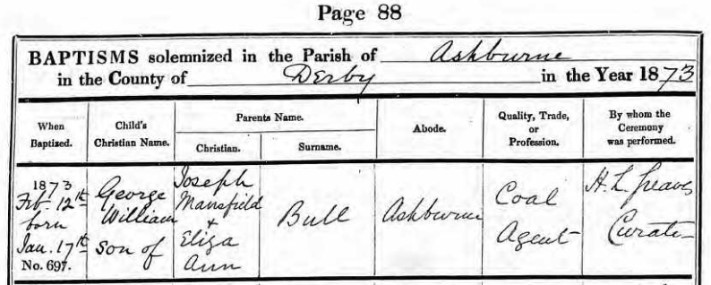 Page 88
BAPTISMS solemnized in the Parish of Ashburne
in the County of Derby in the Year 1873
When Baptized.
Child's Christian Name.
Parents Name.
Christian.
Surname.
Abode.
Quality, Trade, or Profession.
By whom the Ceremony was performed.
1873
Feb. 12th
born
Jan. 17th
No. 697.
George
William
son of
Joseph
Mansfield
+
Eliza
Ann
Bull
Ashburne
Coal
Agent
H. L. Greaves
Curate